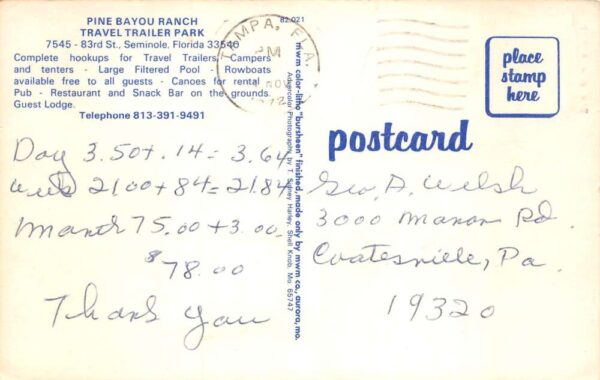 PINE BAYOU RANCH
TRAVEL TRAILER PARK
7545 - 83rd St., Seminole, Florida 33540
Complete hookups for Travel Trailers, Campers
and tenters - Large Filtered Pool - Rowboats
available free to all guests - Canoes for rental
Pub - Restaurant and Snack Bar on the grounds.
Guest Lodge.
Telephone 813-391-9491
Day 3.50 + .14 = 3.64
week 21.00 + 84 = 21.84
Month 75.00 + 3.00
$78.00
Thank You
82,021
TAMPA, FLA.
PM
NOV
1972
mwm color-litho "bursheen" finished, made only by mwm co., aurora, mo.
Adgercolor Photography by T. Sidney Harley, Shell Knob, Mo. 65747
place
stamp
here
postcard
Geo. A. Welsh
3000 Manor Rd.
Coatesville, Pa.
19320